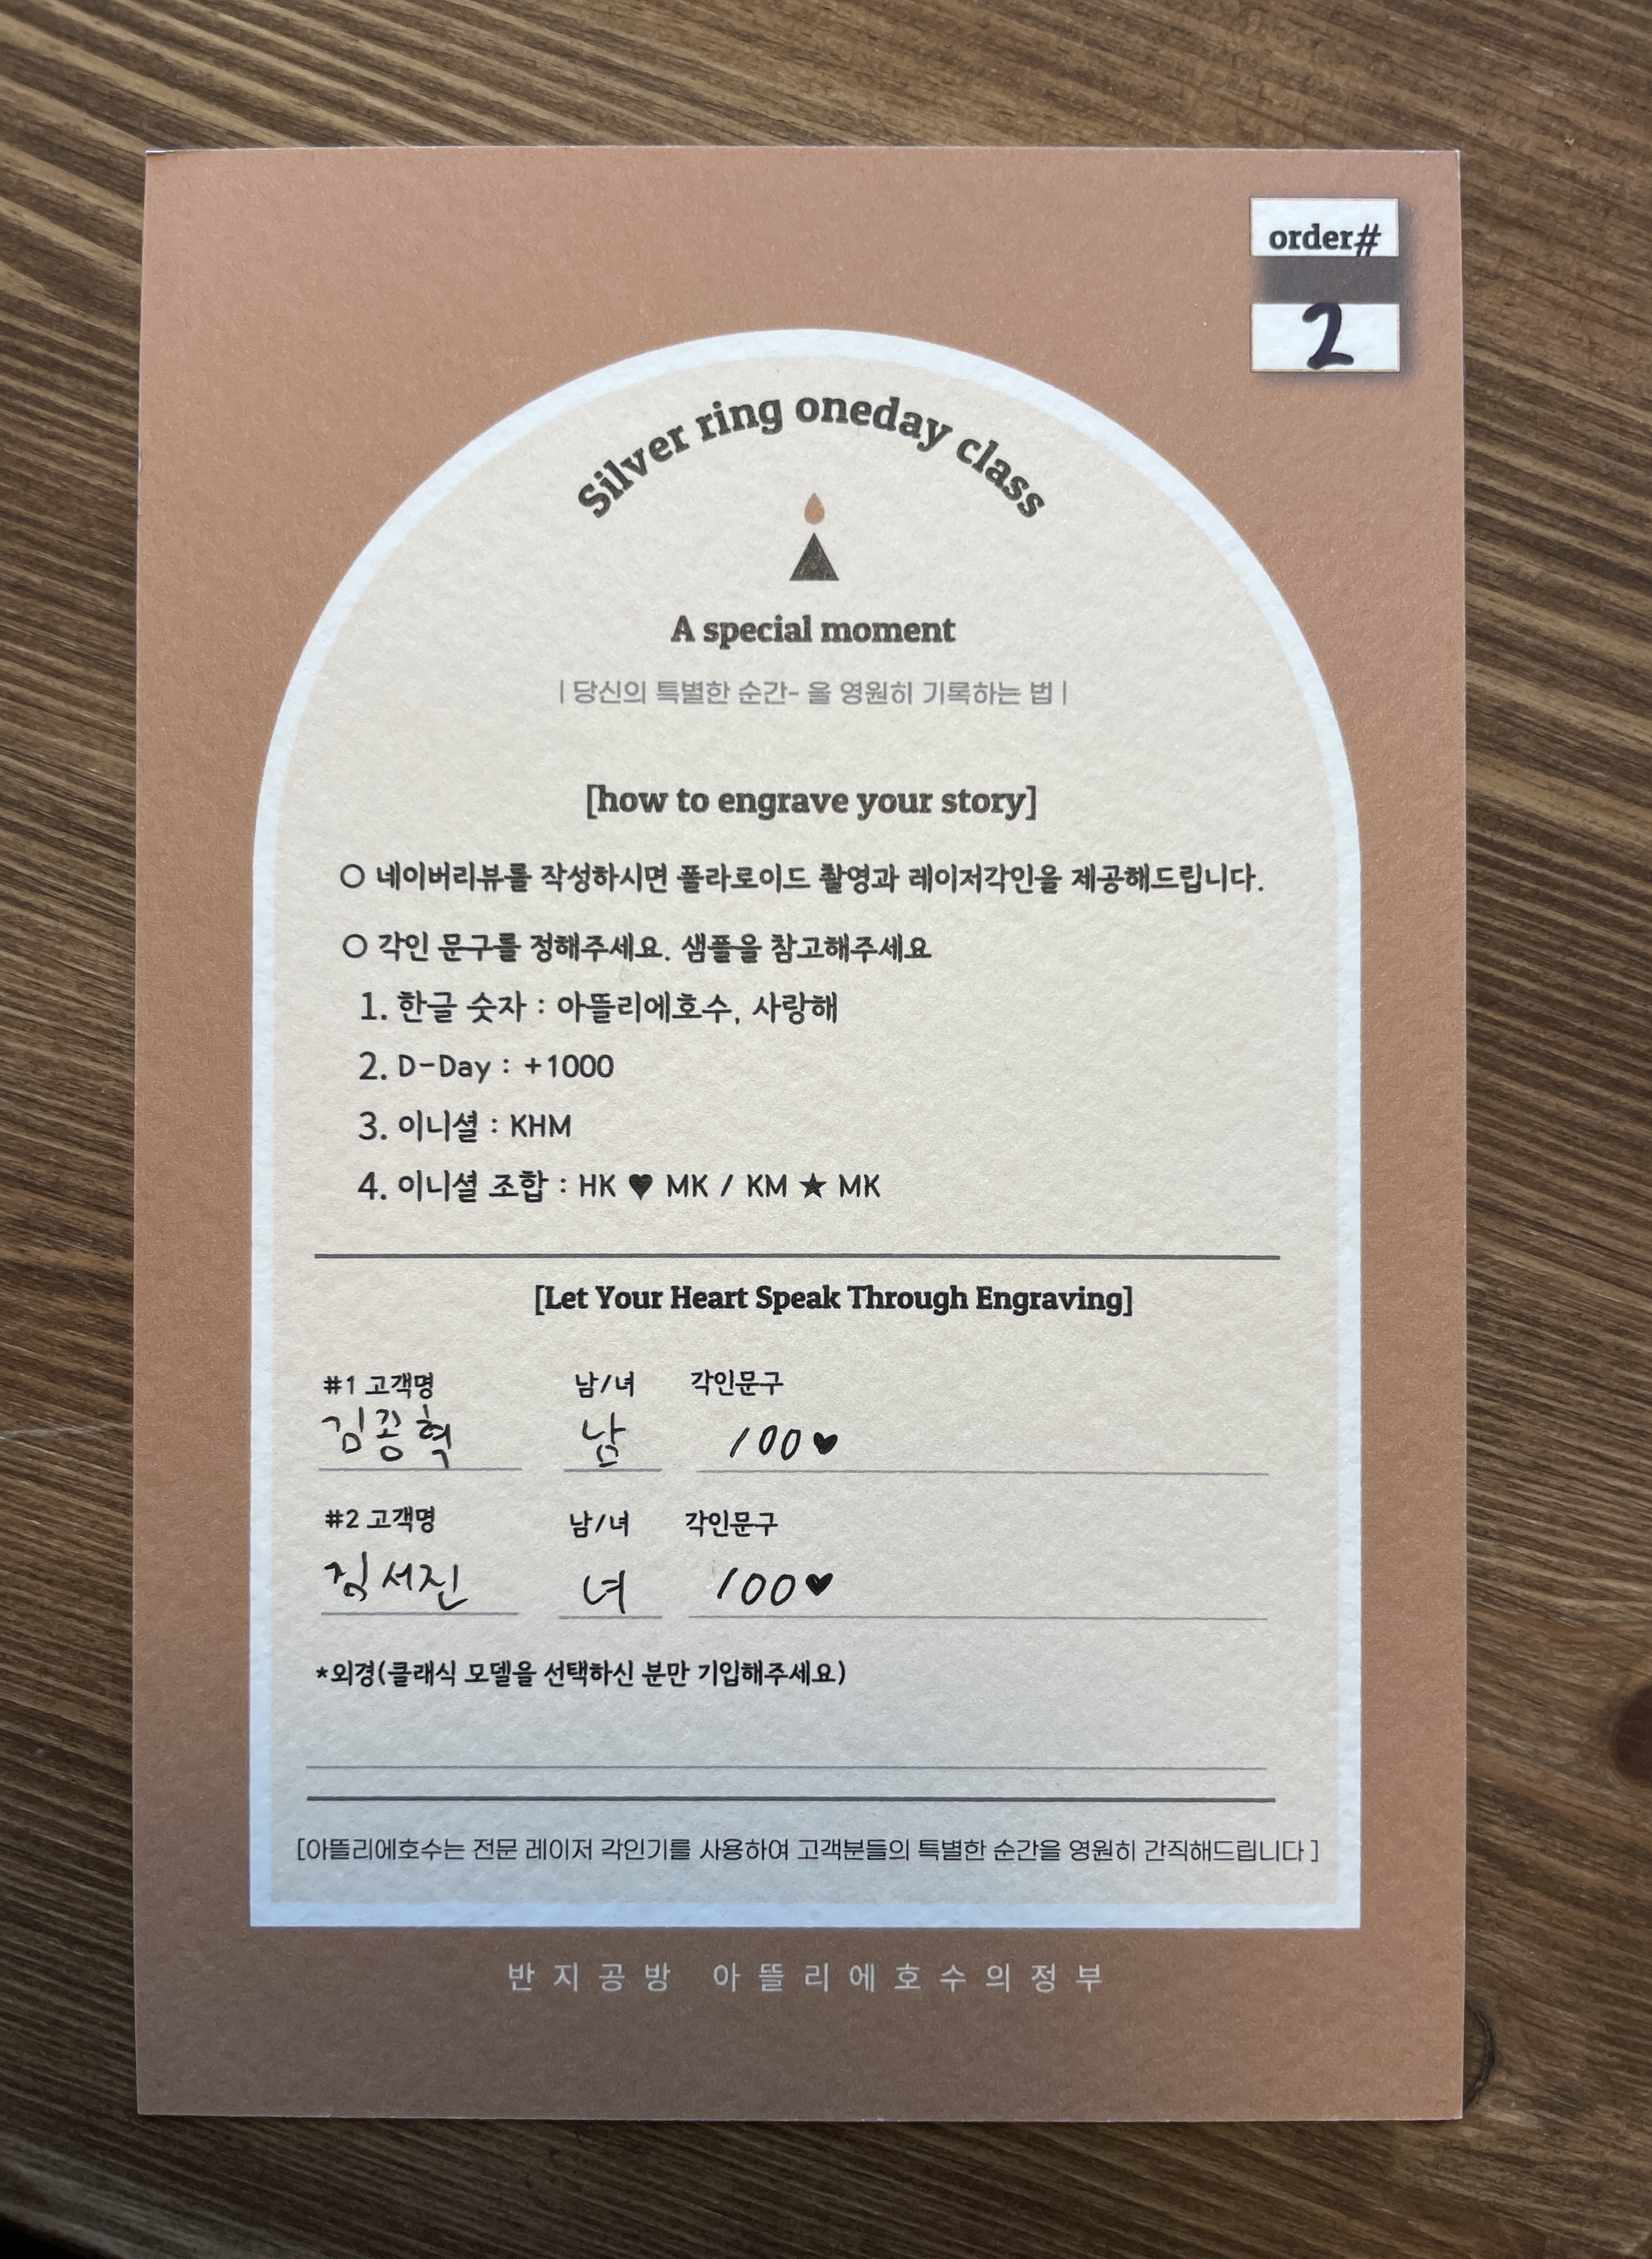 order#
2
Silver ring oneday class
A special moment
| 당신의 특별한 순간- 을 영원히 기록하는 법 |
[how to engrave your story]
○ 네이버리뷰를 작성하시면 폴라로이드 촬영과 레이저각인을 제공해드립니다.
○ 각인 문구를 정해주세요. 샘플을 참고해주세요
1. 한글 숫자 : 아뜰리에호수, 사랑해
2. D-Day : +1000
3. 이니셜 : KHM
4. 이니셜 조합 : HK ♥ MK / KM ★ MK
[Let Your Heart Speak Through Engraving]
#1 고객명 남/녀 각인문구
남 100♥
#2 고객명 남/녀 각인문구
녀 100♥
*외경(클래식 모델을 선택하신 분만 기입해주세요)
[아뜰리에호수는 전문 레이저 각인기를 사용하여 고객분들의 특별한 순간을 영원히 간직해드립니다 ]
반지공방 아뜰리에호수의정부